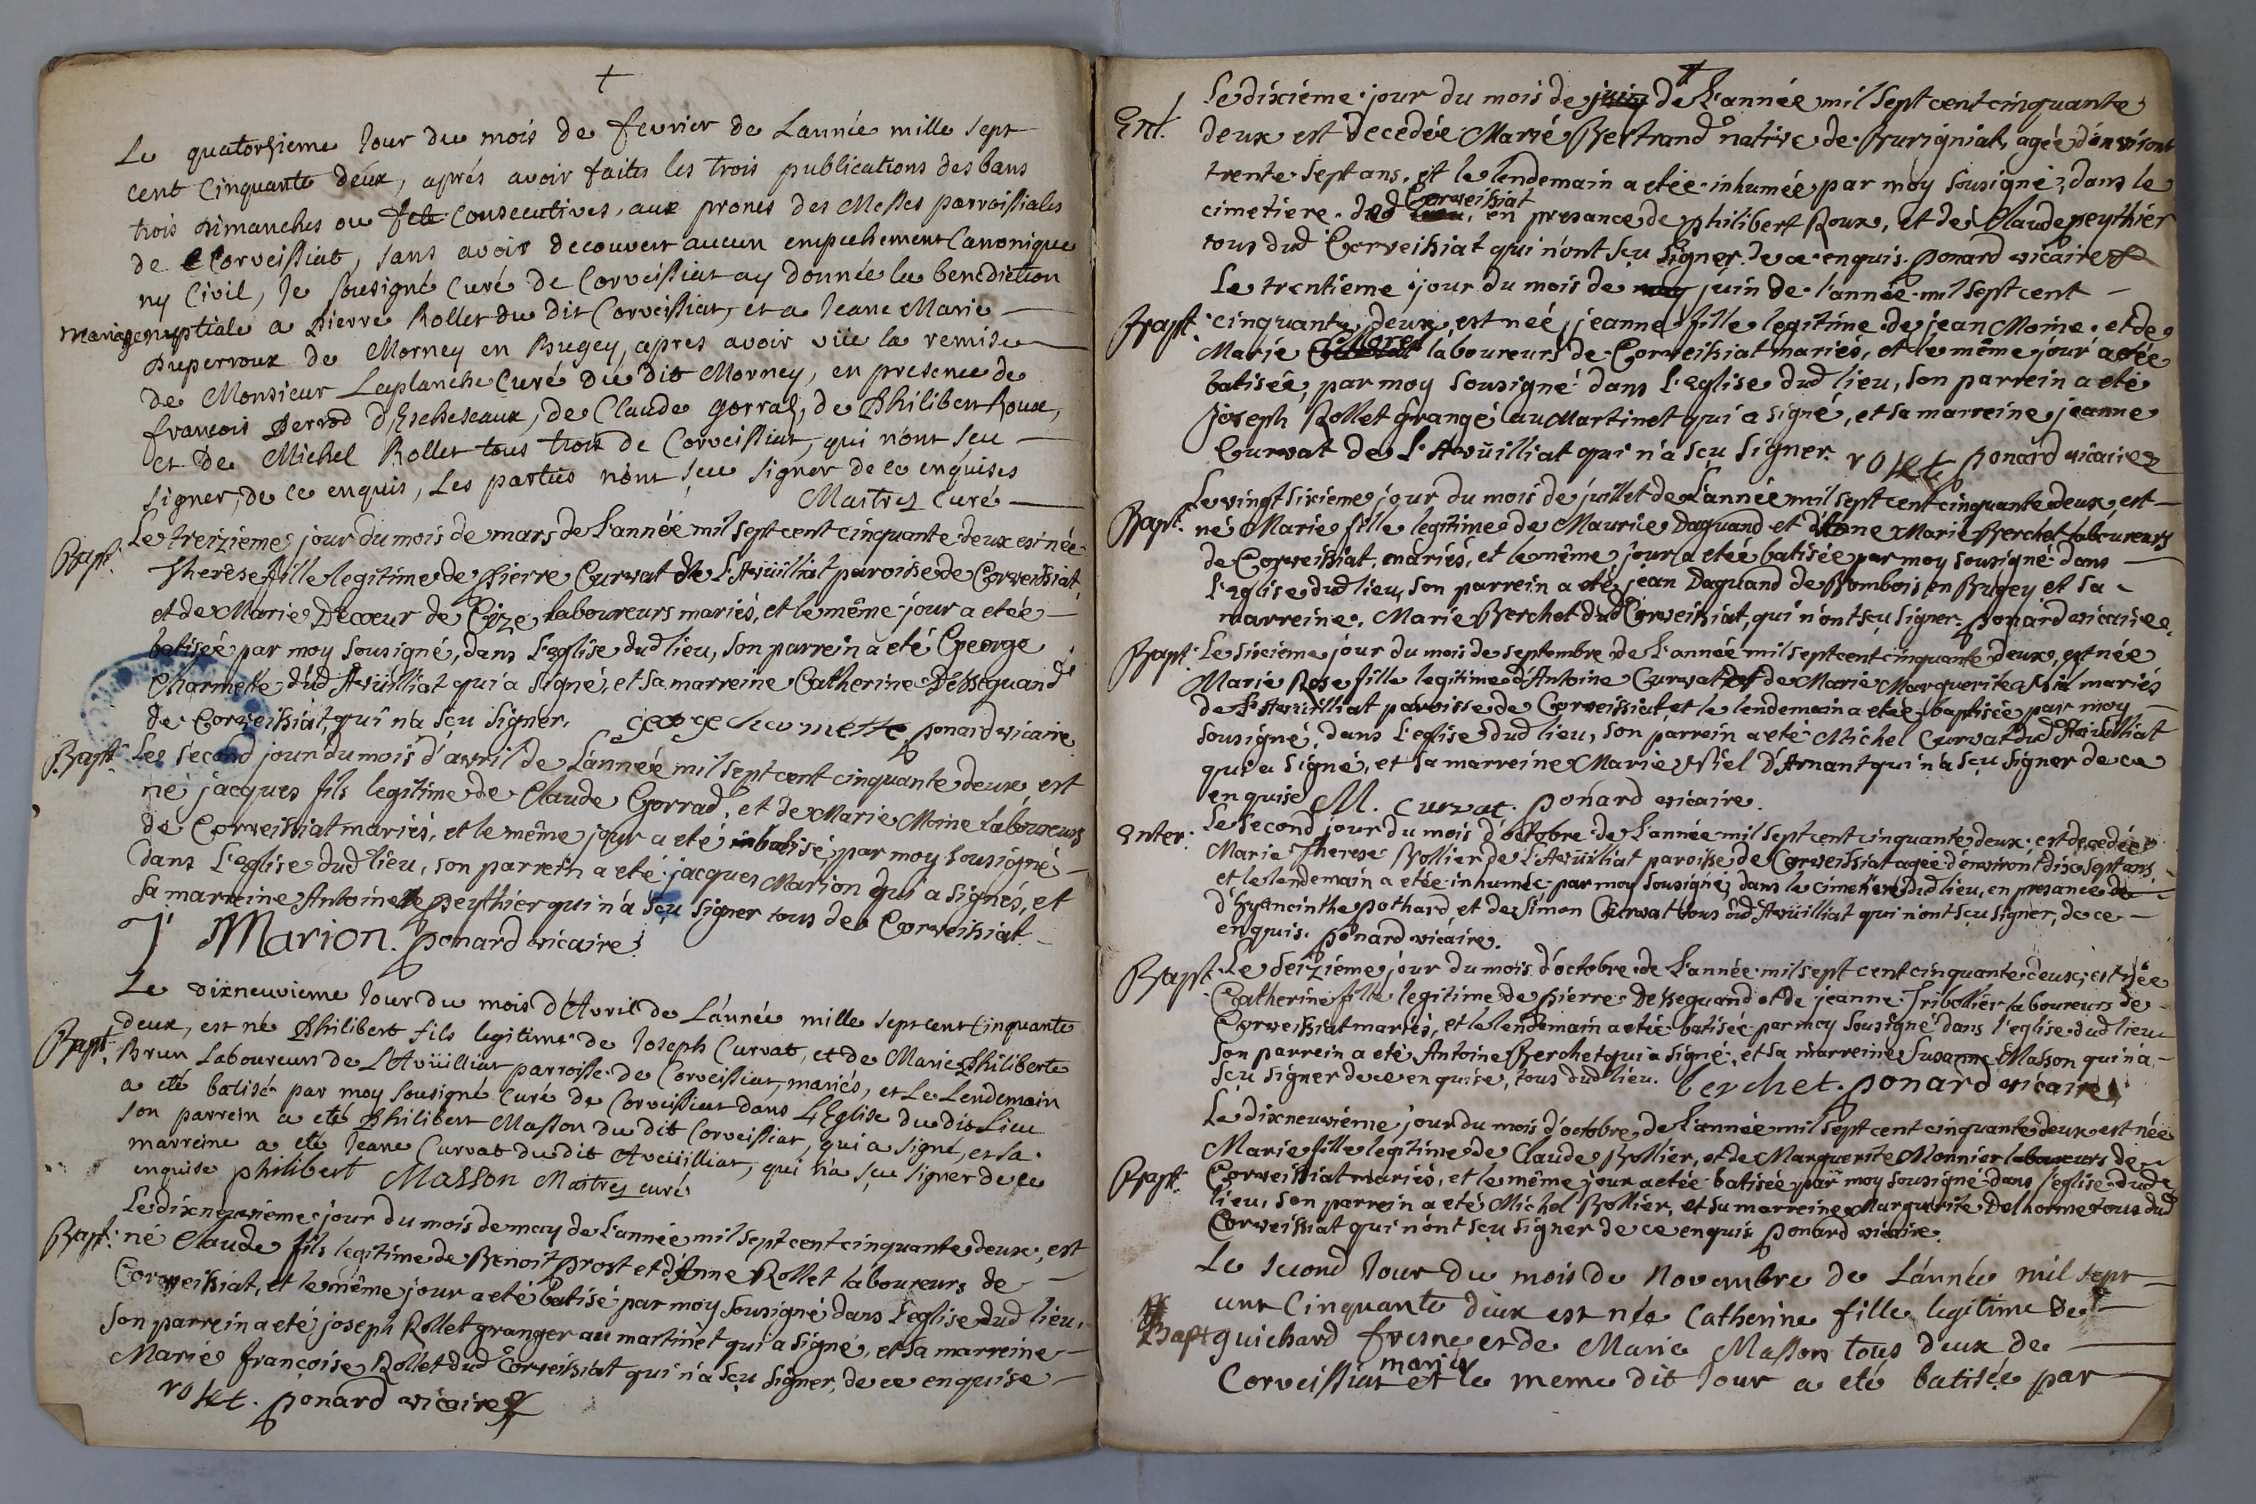 +
Le quatorsieme Jour du mois de fevrier de Lannée mille sept
cent Cinquante deux, aprés avoir faites les trois publications des bans
trois Dimanches ou fete Consecutives, aux prones des Messes parroissiales
de Corveissiat, sans avoir decouvert aucun empechement Canonique
ny Civil, Je sousigné Curé de Corveissiat ay donnée la benediction
Mariage nuptiale a Pierre Rollet du dit Corveissiat, et a Jeane Marie
Dupervoux de Morney en Bugey, apres avoir vüe la remise
de Monsieur Laplanche Curé du dit Morney, en presence de
francois Perrod d'Escheseaux, de Claude gorrad, de Philibert Roux,
et De Michel Rollet tous trois de Corveissiat, qui n'ont seu
signer, de ce enquis, Les parties n'ont seu signer de ce enquises
Maitrez Curé
Bapt. Le treizieme jour du mois de mars de L'année mil sept cent cinquante deux est née
Therese fille legitime de Pierre Curvat de L'Avüilliat paroisse de Corveissiat
et de Marie Decœur de Cize laboureurs mariés, et le même jour a etée
batisée par moy sousigné, dans l'eglise dud lieu, son parrein a eté George
Charmette dud Avüilliat qui a signé, et sa marreine Catherine Dessequand
de Corveissiat, qui n'a sçu signer. george charmette ponard vicaire
Bapt. Le second jour du mois d'avril de L'année mil sept cent cinquante deux, est
né jacques fils legitime de Claude Gorrad, et de Marie Moine laboureurs
de Corveissiat mariés, et le même jour a eté batisé par moy sousigné
dans L'eglise dud lieu, son parrein a eté jacques Marion qui a signés, et
sa marreine Antoinette Peythier qui n'a sçu signer tous de Corveissiat
J Marion. ponard vicaire
Le dixneuvieme Jour du mois d'Avril de L'année mille sept cent Cinquante
deux, est né Philibert fils legitime de Joseph Curvat, et de Marie Philiberte
Bapt. Brun Laboureurs de L'Avüilliat parroisse de Corveissiat, mariés, et Le Lendemain
a eté batisé par moy sousigné Curé de Corveissiat dans L'Eglise du dit Lieu
son parrein a eté Philibert Masson du dit Corveissiat, qui a signé, et sa
marreine a eté Jeane Curvat du dit Aveüilliat, qui n'a sçu signer de ce
enquise philibert Masson Maitrez curé
Le dixneuvieme jour du mois de may de L'année mil sept cent cinquante deux, est
Bapt. né Claude fils legitime de Benoit Prost et d'Anne Rollet laboureurs de
Corveissiat, et le même jour a eté batisé par moy sousigné dans l'eglise dud lieu,
son parrein a eté joseph Rollet granger au martinet qui a signé, et sa marreine
Marie françoise Rollet dud Corveissiat qui n'a sçu signer, de ce enquise
rolet. ponard vicaire
+
Le dixieme jour du mois de juin de L'année mil sept cent cinquante
Ent. deux est decedée Marie Bertrand native de agée d'environ
trente sept ans, et le lendemain a etée inhumée par moy sousigné, dans le
cimetiere dud Corveissiat, en presance de Philibert Roux, et de Claude peythier
tous dud Corveissiat qui n'ont sçu signer de ce enquis. ponard vicaire
Le trentieme jour du mois de juin de l'année mil sept cent
Bapt. cinquante deux, est née, jeanne fille legitime de jean Moine et de
Marie laboureurs de Corveissiat mariés, et le même jour a etée
batisée, par moy sousigné dans L'eglise dud lieu, son parrein a eté
joseph Rollet Grangé au Martinet qui a signé, et sa marreine jeanne
Curvat de L'Avüilliat qui n'a sçu signer. rolet ponard vicaire
Le vingt sixieme jour du mois de juillet de L'année mil sept cent cinquante deux, est
Bapt. né Marie fille legitime de Maurice Daguand et d'Anne Marie Berchet laboureurs
de Corveissiat, mariés, et le même jour a etée batisée par moy sousigné dans
l'eglise dud lieu, son parrein a eté, jean Daguand de Bombois en Bugey et sa
marreine, Marie Berchet dud Corveissiat, qui n'ont sçu signer. ponard vicaire
Bapt. Le sixieme jour du mois de septembre de L'année mil sept cent cinquante deux, est née
Marie Rose fille legitime d'Antoine Curvat et de Marie Marguerite mariés
de L'Avüilliat paroisse de Corveissiat, et le lendemain a etée baptisée par moy
sousigné, dans l'eglise dud lieu, son parrein a eté Michel Curvat dud Avüilliat
qui a signé, et sa marreine Marie Niel D'Arnant qui n'a sçu signer de ce
enquise M. Curvat. ponard vicaire.
Enter. Le second jour du mois d'octobre de L'année mil sept cent cinquante deux est decedée
Marie Therese Bollier de L'Avüilliat paroisse de Corveissiat agée d'environt dix sept ans
et le lendemain a etée inhumée par moy sousigné, dans le cimetiere dud lieu, en presance de
d'Hyancinthe Pothard, et de Simon Curvat tous dud Avüilliat qui n'ont sçu signer, de ce
enquis. ponard vicaire.
Bapt. Le seizieme jour du mois d'octobre de L'année mil sept cent cinquante deux, est née
Catherine fille legitime de Pierre Dessequand et de jeanne Tribollier laboureurs de
Corveissiat mariés, et le lendemain a etée batisée par moy sousigné dans l'eglise dud lieu
son parrein a eté Antoine Berchet qui a signé, et sa marreine Susanne Masson qui n'a
sçu signer de ce enquise, tous dud lieu. berchet. ponard vicaire
Le dixneuvieme jour du mois d'octobre de L'année mil sept cent cinquante deux est née
Marie fille legitime de Claude Bollier, et de Marguerite Monnier laboureurs de
Bapt. Corveissiat mariés, et le même jour a etée batisée par moy sousigné dans l'eglise dud
lieu, son parrein a eté Michel Bollier, et sa marreine Marguerite Delhorme tous dud
Corveissiat qui n'ont sçu signer de ce enquis ponard vicaire.
Le second Jour du mois de Novembre de L'année mil sept
cent Cinquante deux est née Catherine fille legitime de
Bapt guichard fresne et de Marie Masson tous deux de
Corveissiat mariés et le meme dit Jour a eté batisée par